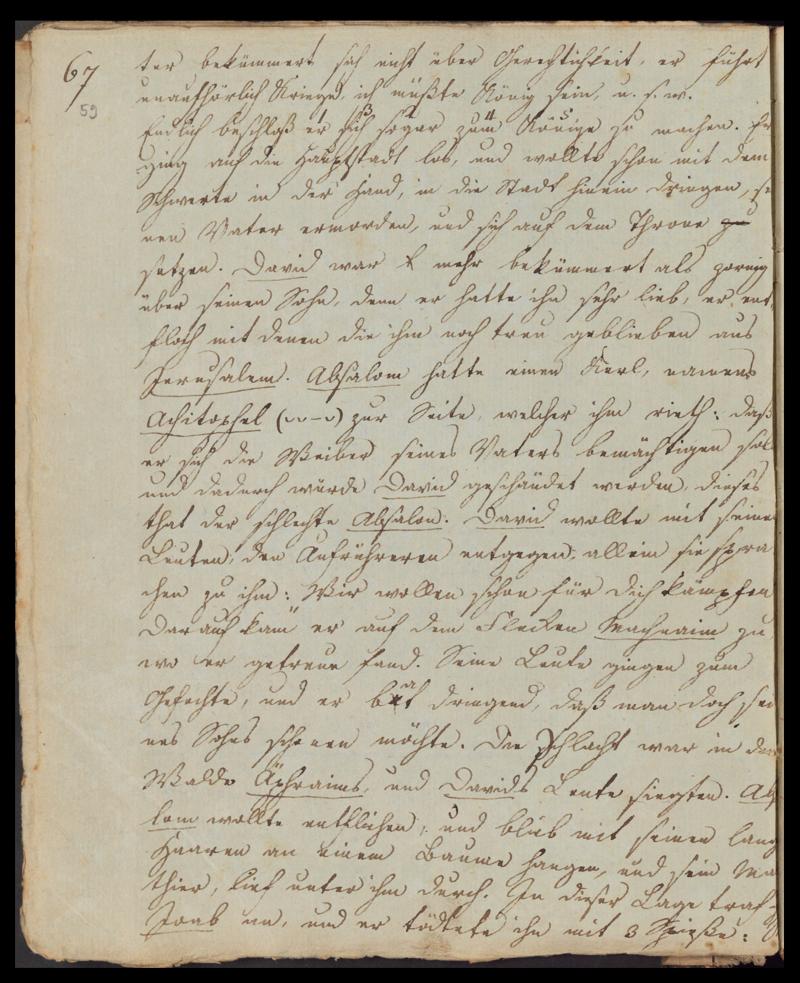 67
59
ter bekümmert sich nicht über Gerechtichkeit, er führt
unaufhörlich Kriege, ich müßte König sein, u. s. w.
Endlich beschloß er sich sogar zum Könige zu machen. Er
ging auf die Hauptstadt los, und wollte schon mit dem
Schwerte in der Hand, in die Stadt hinein dringen, se
nen Vater ermorden, und sich auf dem Throne zu
setzen. David war mehr bekümmert als zornig
über seinen Sohn, denn er hatte ihn sehr lieb, er ent
floh mit denen die ihm noch treu geblieben aus
Jerusalem. Absalom hatte einen Kerl, namens
Achitophel (⏑⏑–⏑) zur Seite, welcher ihm rieth: daß
er sich die Weiber seines Vaters bemächtigen sol
und dadurch würde David geschändet werden, dieses
that der schlechte Absalon. David wollte mit seine
Leuten, den Aufrührern entgegen, allein sie spra
chen zu ihm: Wir wollen schon für dich kämpfen
Darauf kam er auf dem Flecken Machnaim zu
wo er getreue fand. Seine Leute gingen zum
Gefechte, und er bat dringend, daß man doch sei
nes Sohns schonen möchte. Die Schlacht war in dem
Walde Äphraims, und Davids Leute siegten. Abs
lom wollte entfliehen, und blieb mit seinen lang
Haaren an einem Baume hangen, und sein Ma
thier, lief unter ihm durch. In dieser Lage traf
Joab an, und er tödtete ihn mit 3 Spieße: